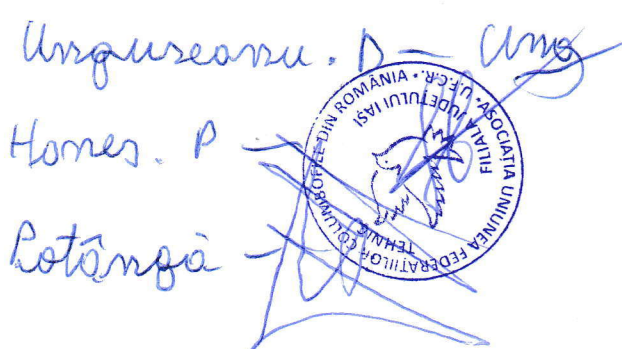 Ungureanu. D — Ung
Hones. P —
Rotângă —
ASOCIAȚIA UNIUNEA FEDERAȚIILOR COLUMBOFILE DIN ROMÂNIA • U.F.C.R. •
FILIALA JUDEȚULUI IAȘI
TEHNIC